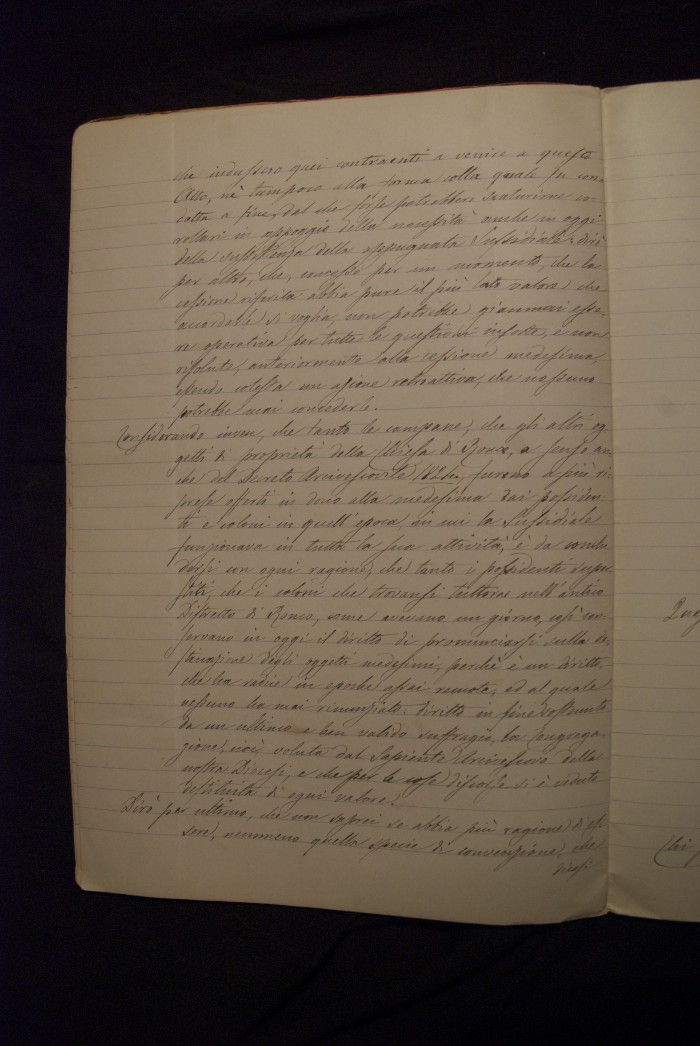 che indussero quei contraenti a venire a questo
Atto, nè tampoco alla forma colla quale fu con-
dotta a fine, dal che forse potrebbero scaturirne co-
rollari in appoggio della necessità anche in oggi
della sussistenza della oppugnata Sussidiale; dirò
per altro, che, concesso per un momento, che la
cessione riferita abbia pure il più lato valore che
accordarle si voglia, non potrebbe giammai esse-
re operativa per tutte le questioni insorte, e non
risolute, anteriormente alla cessione medesima,
essendo cotesta un azione retroattiva, che nessuno
potrebbe mai concederle.
Considerando invece, che tanto le campane, che gli altri og-
getti di proprietà della Chiesa di Ronco, a senso an-
che del Decreto Arcivescovile 1824, furono a più ri-
prese offerti in dono alla medesima dai possiden-
ti e coloni in quell'epoca in cui la Sussidiale
funzionava in tutta la sua attività, è da conclu-
dersi con ogni ragione, che tanto i possidenti super-
stiti, che i coloni che trovansi tuttora nell'antico
Distretto di Ronco, come avevano un giorno, così con-
servano in oggi il diritto di pronunciarsi sulla de-
stinazione degli oggetti medesimi, perchè è un diritto,
che ha radice in epoche assai remote, ed al quale
nessuno ha mai rinunziato: diritto in fine sossunto
da un ultimo e ben valido suffragio, la Congrega-
zione, cioè voluta dal Sapiente Arcivescovo della
nostra Diocesi, e che per le cose discorse si è veduta
destituita di ogni valore.
Dirò per ultimo, che non saprei se abbia più ragione di es-
sere, nemmeno quella specie di convenzione, che
dicesi